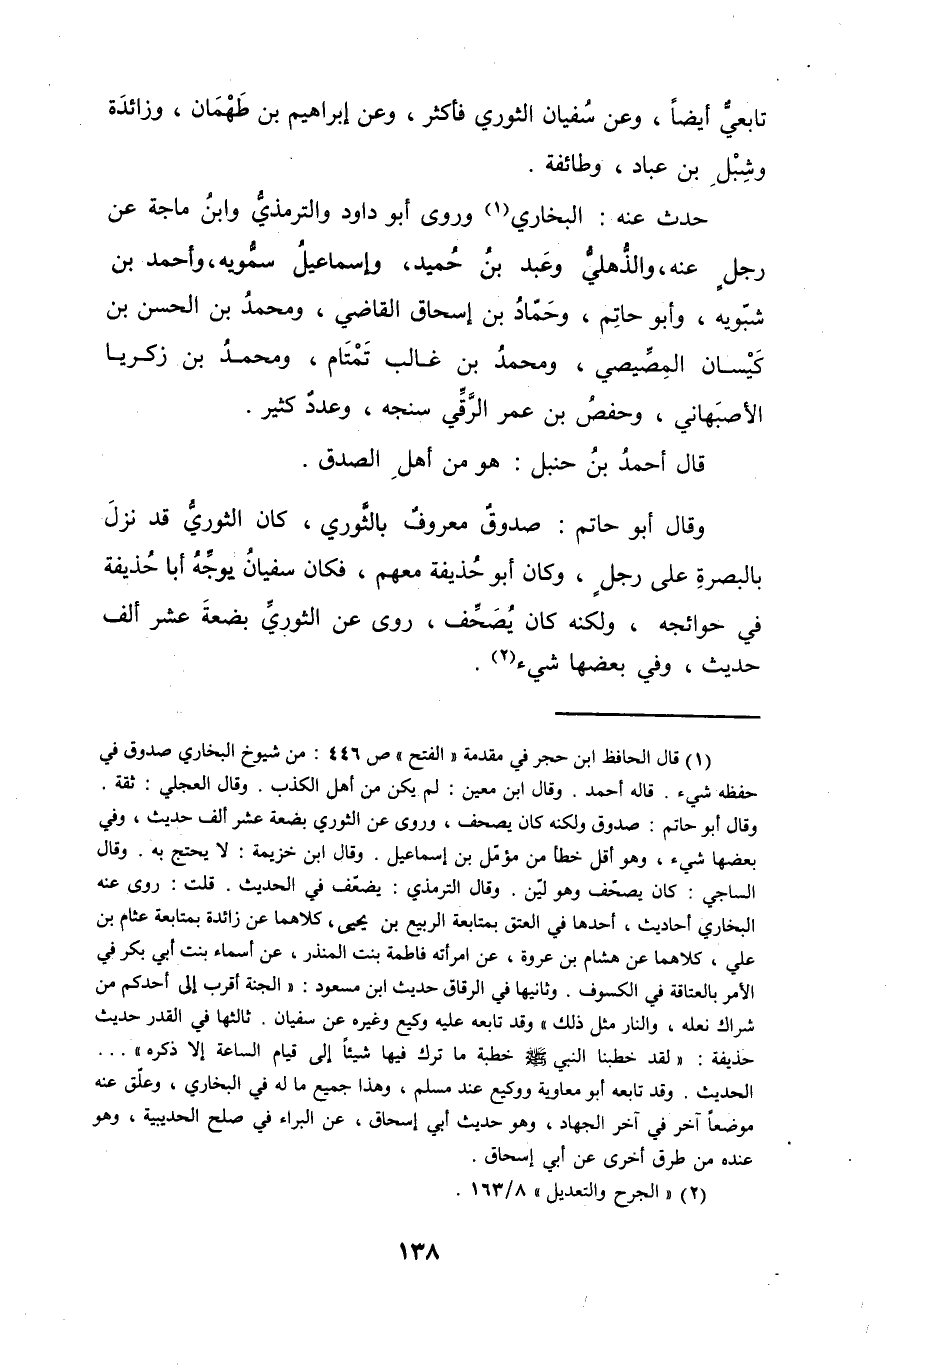 تابعيٌّ أيضاً ، وعن سُفيان الثوري فأكثر ، وعن إبراهيم بن طَهْمَان ، وزائدَة
وشِبْلِ بن عباد ، وطائفة .
حدث عنه : البخاري(١) وروى أبو داود والترمذيُّ وابنُ ماجة عن
رجلٍ عنه،والذُّهليُّ وعَبد بنُ حُميد، وإسماعيلُ سمُّويه،وأحمد بن
شبّويه ، وأبو حاتِم ، وحَمّادُ بن إسحاق القاضي ، ومحمدُ بن الحسن بن
كَيْسان المِصِّيصي ، ومحمدُ بن غالب تَمْتَام ، ومحمدُ بن زكريا
الأصبَهاني ، وحفصُ بن عمر الرَّقِّي سنجه ، وعددٌ كثير .
قال أحمدُ بنُ حنبل : هو من أهلِ الصدق .
وقال أبو حاتم : صدوقٌ معروفٌ بالثَّوري ، كان الثوريُّ قد نزلَ
بالبصرةِ على رجلٍ ، وكان أبو حُذيفة معهم ، فكان سفيانُ يوجِّهُ أبا حُذيفة
في حوائجه ، ولكنه كان يُصَحِّف ، روى عن الثوريِّ بضعةَ عشر ألف
حديث ، وفي بعضها شيء(٢) .
(١) قال الحافظ ابن حجر في مقدمة « الفتح » ص ٤٤٦ : من شيوخ البخاري صدوق في
حفظه شيء . قاله أحمد . وقال ابن معين : لم يكن من أهل الكذب . وقال العجلي : ثقة .
وقال أبو حاتم : صدوق ولكنه كان يصحف ، وروى عن الثوري بضعة عشر ألف حديث ، وفي
بعضها شيء ، وهو أقل خطأ من مؤمّل بن إسماعيل . وقال ابن خزيمة : لا يحتج به . وقال
الساجي : كان يصحّف وهو ليّن . وقال الترمذي : يضعّف في الحديث . قلت : روى عنه
البخاري أحاديث ، أحدها في العتق بمتابعة الربيع بن يحيى، كلاهما عن زائدة بمتابعة عثام بن
علي ، كلاهما عن هشام بن عروة ، عن امرأته فاطمة بنت المنذر ، عن أسماء بنت أبي بكر في
الأمر بالعتاقة في الكسوف . وثانيها في الرقاق حديث ابن مسعود : « الجنة أقرب إلى أحدكم من
شراك نعله ، والنار مثل ذلك » وقد تابعه عليه وكيع وغيره عن سفيان . ثالثها في القدر حديث
حذيفة : « لقد خطبنا النبي ﷺ خطبة ما ترك فيها شيئاً إلى قيام الساعة إلا ذكره » ...
الحديث . وقد تابعه أبو معاوية ووكيع عند مسلم ، وهذا جميع ما له في البخاري ، وعلّق عنه
موضعاً آخر في آخر الجهاد ، وهو حديث أبي إسحاق ، عن البراء في صلح الحديبية ، وهو
عنده من طرق أخرى عن أبي إسحاق .
(٢) « الجرح والتعديل » ١٦٣/٨ .
١٣٨